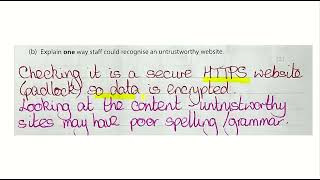 (b) Explain one way staff could recognise an untrustworthy website.
Checking it is a secure HTTPS website
(padlock) so data is encrypted.
Looking at the content - untrustworthy
sites may have poor spelling/grammar.